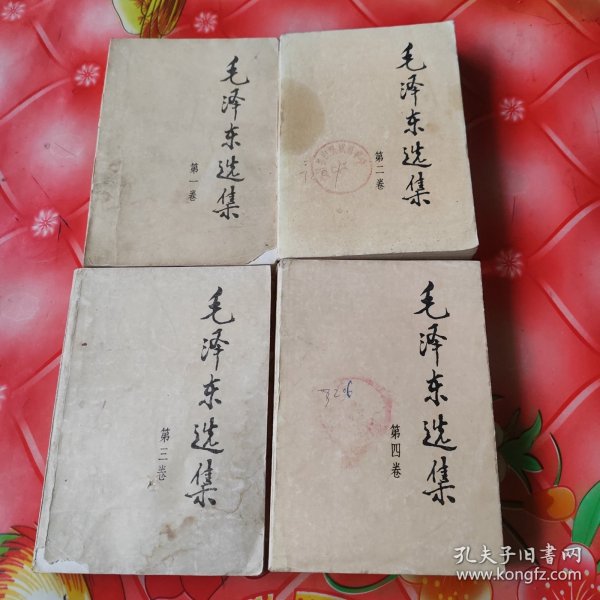 毛泽东选集
第一卷
毛泽东选集
第二卷
毛泽东选集
第三卷
毛泽东选集
第四卷
孔夫子旧書网
www.kongfz.com